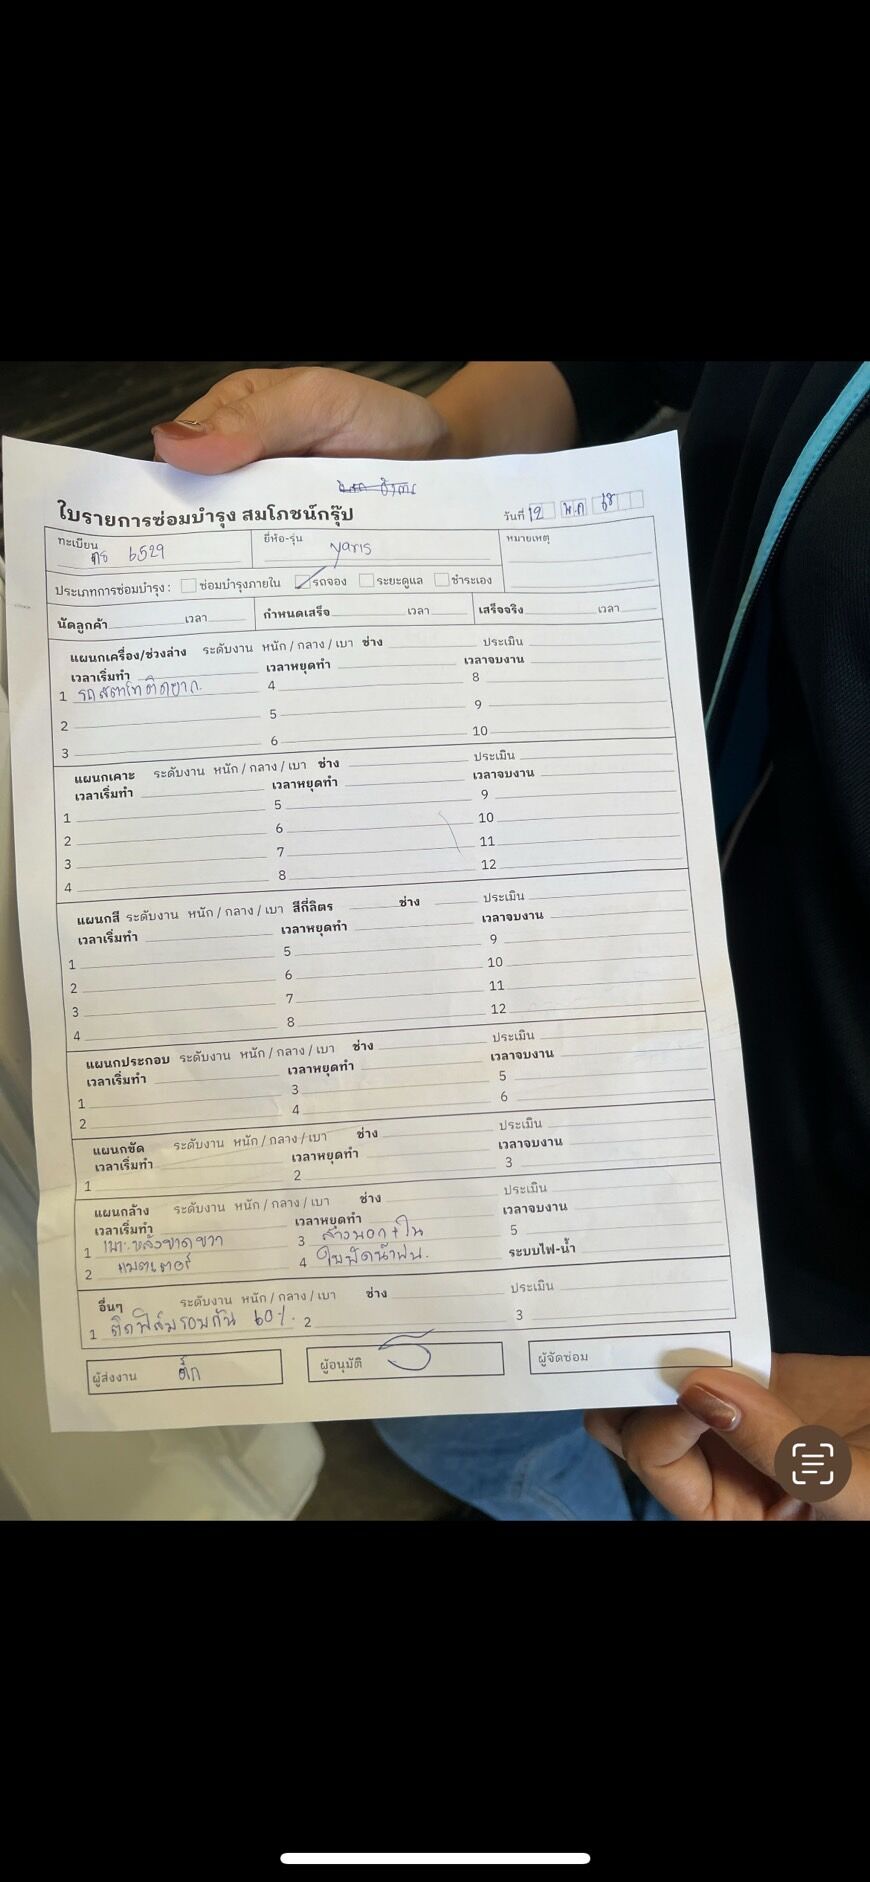 ใบรายการซ่อมบำรุง สมโภชน์กรุ๊ป
วันที่ 12 พ.ค 68
ทะเบียน 6529 ยี่ห้อ-รุ่น yaris หมายเหตุ
ประเภทการซ่อมบำรุง : ซ่อมบำรุงภายใน รถจอง ระยะดูแล ชำระเอง
นัดลูกค้า เวลา กำหนดเสร็จ เวลา เสร็จจริง เวลา
แผนกเครื่อง/ช่วงล่าง ระดับงาน หนัก / กลาง / เบา ช่าง ประเมิน
เวลาเริ่มทำ เวลาหยุดทำ เวลาจบงาน
1 รถสตาทติดยาก 4 8
2 5 9
3 6 10
แผนกเคาะ ระดับงาน หนัก / กลาง / เบา ช่าง ประเมิน
เวลาเริ่มทำ เวลาหยุดทำ เวลาจบงาน
1 5 9
2 6 10
3 7 11
4 8 12
แผนกสี ระดับงาน หนัก / กลาง / เบา สีกี่ลิตร ช่าง ประเมิน
เวลาเริ่มทำ เวลาหยุดทำ เวลาจบงาน
1 5 9
2 6 10
3 7 11
4 8 12
แผนกประกอบ ระดับงาน หนัก / กลาง / เบา ช่าง ประเมิน
เวลาเริ่มทำ เวลาหยุดทำ เวลาจบงาน
1 3 5
2 4 6
แผนกขัด ระดับงาน หนัก / กลาง / เบา ช่าง ประเมิน
เวลาเริ่มทำ เวลาหยุดทำ เวลาจบงาน
1 2 3
แผนกล้าง ระดับงาน หนัก / กลาง / เบา ช่าง ประเมิน
เวลาเริ่มทำ เวลาหยุดทำ เวลาจบงาน
1 เบาะหลังขาดขวา 3 ล้างนอก+ใน 5
2 แบตเตอร์ 4 ใบปัดน้ำฝน. ระบบไฟ-น้ำ
อื่นๆ ระดับงาน หนัก / กลาง / เบา ช่าง ประเมิน
1 ติดฟิล์มรอบคัน 60%. 2 3
ผู้ส่งงาน ผู้อนุมัติ ผู้จัดซ่อม